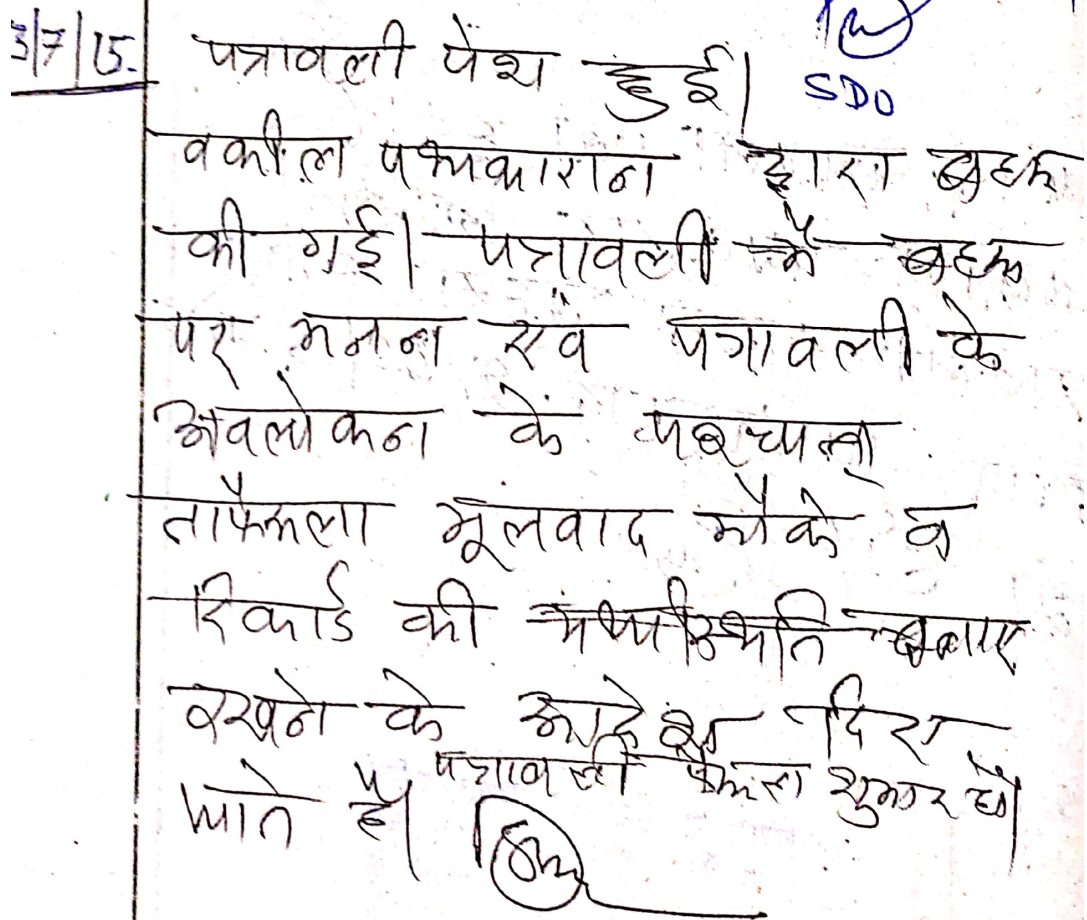 3/7/15. पत्रावली पेश हुई।
SDO
वकील पक्षकारान द्वारा बहस
की गई। पत्रावली में बहस
पर मनन एवं पत्रावली के
अवलोकन के पश्चात्
ताफैसला मूलवाद मौके व
रिकार्ड की यथास्थिति बनाए
रखने के आदेश दिए
जाते है। पत्रावली फैसला शुमार हो।